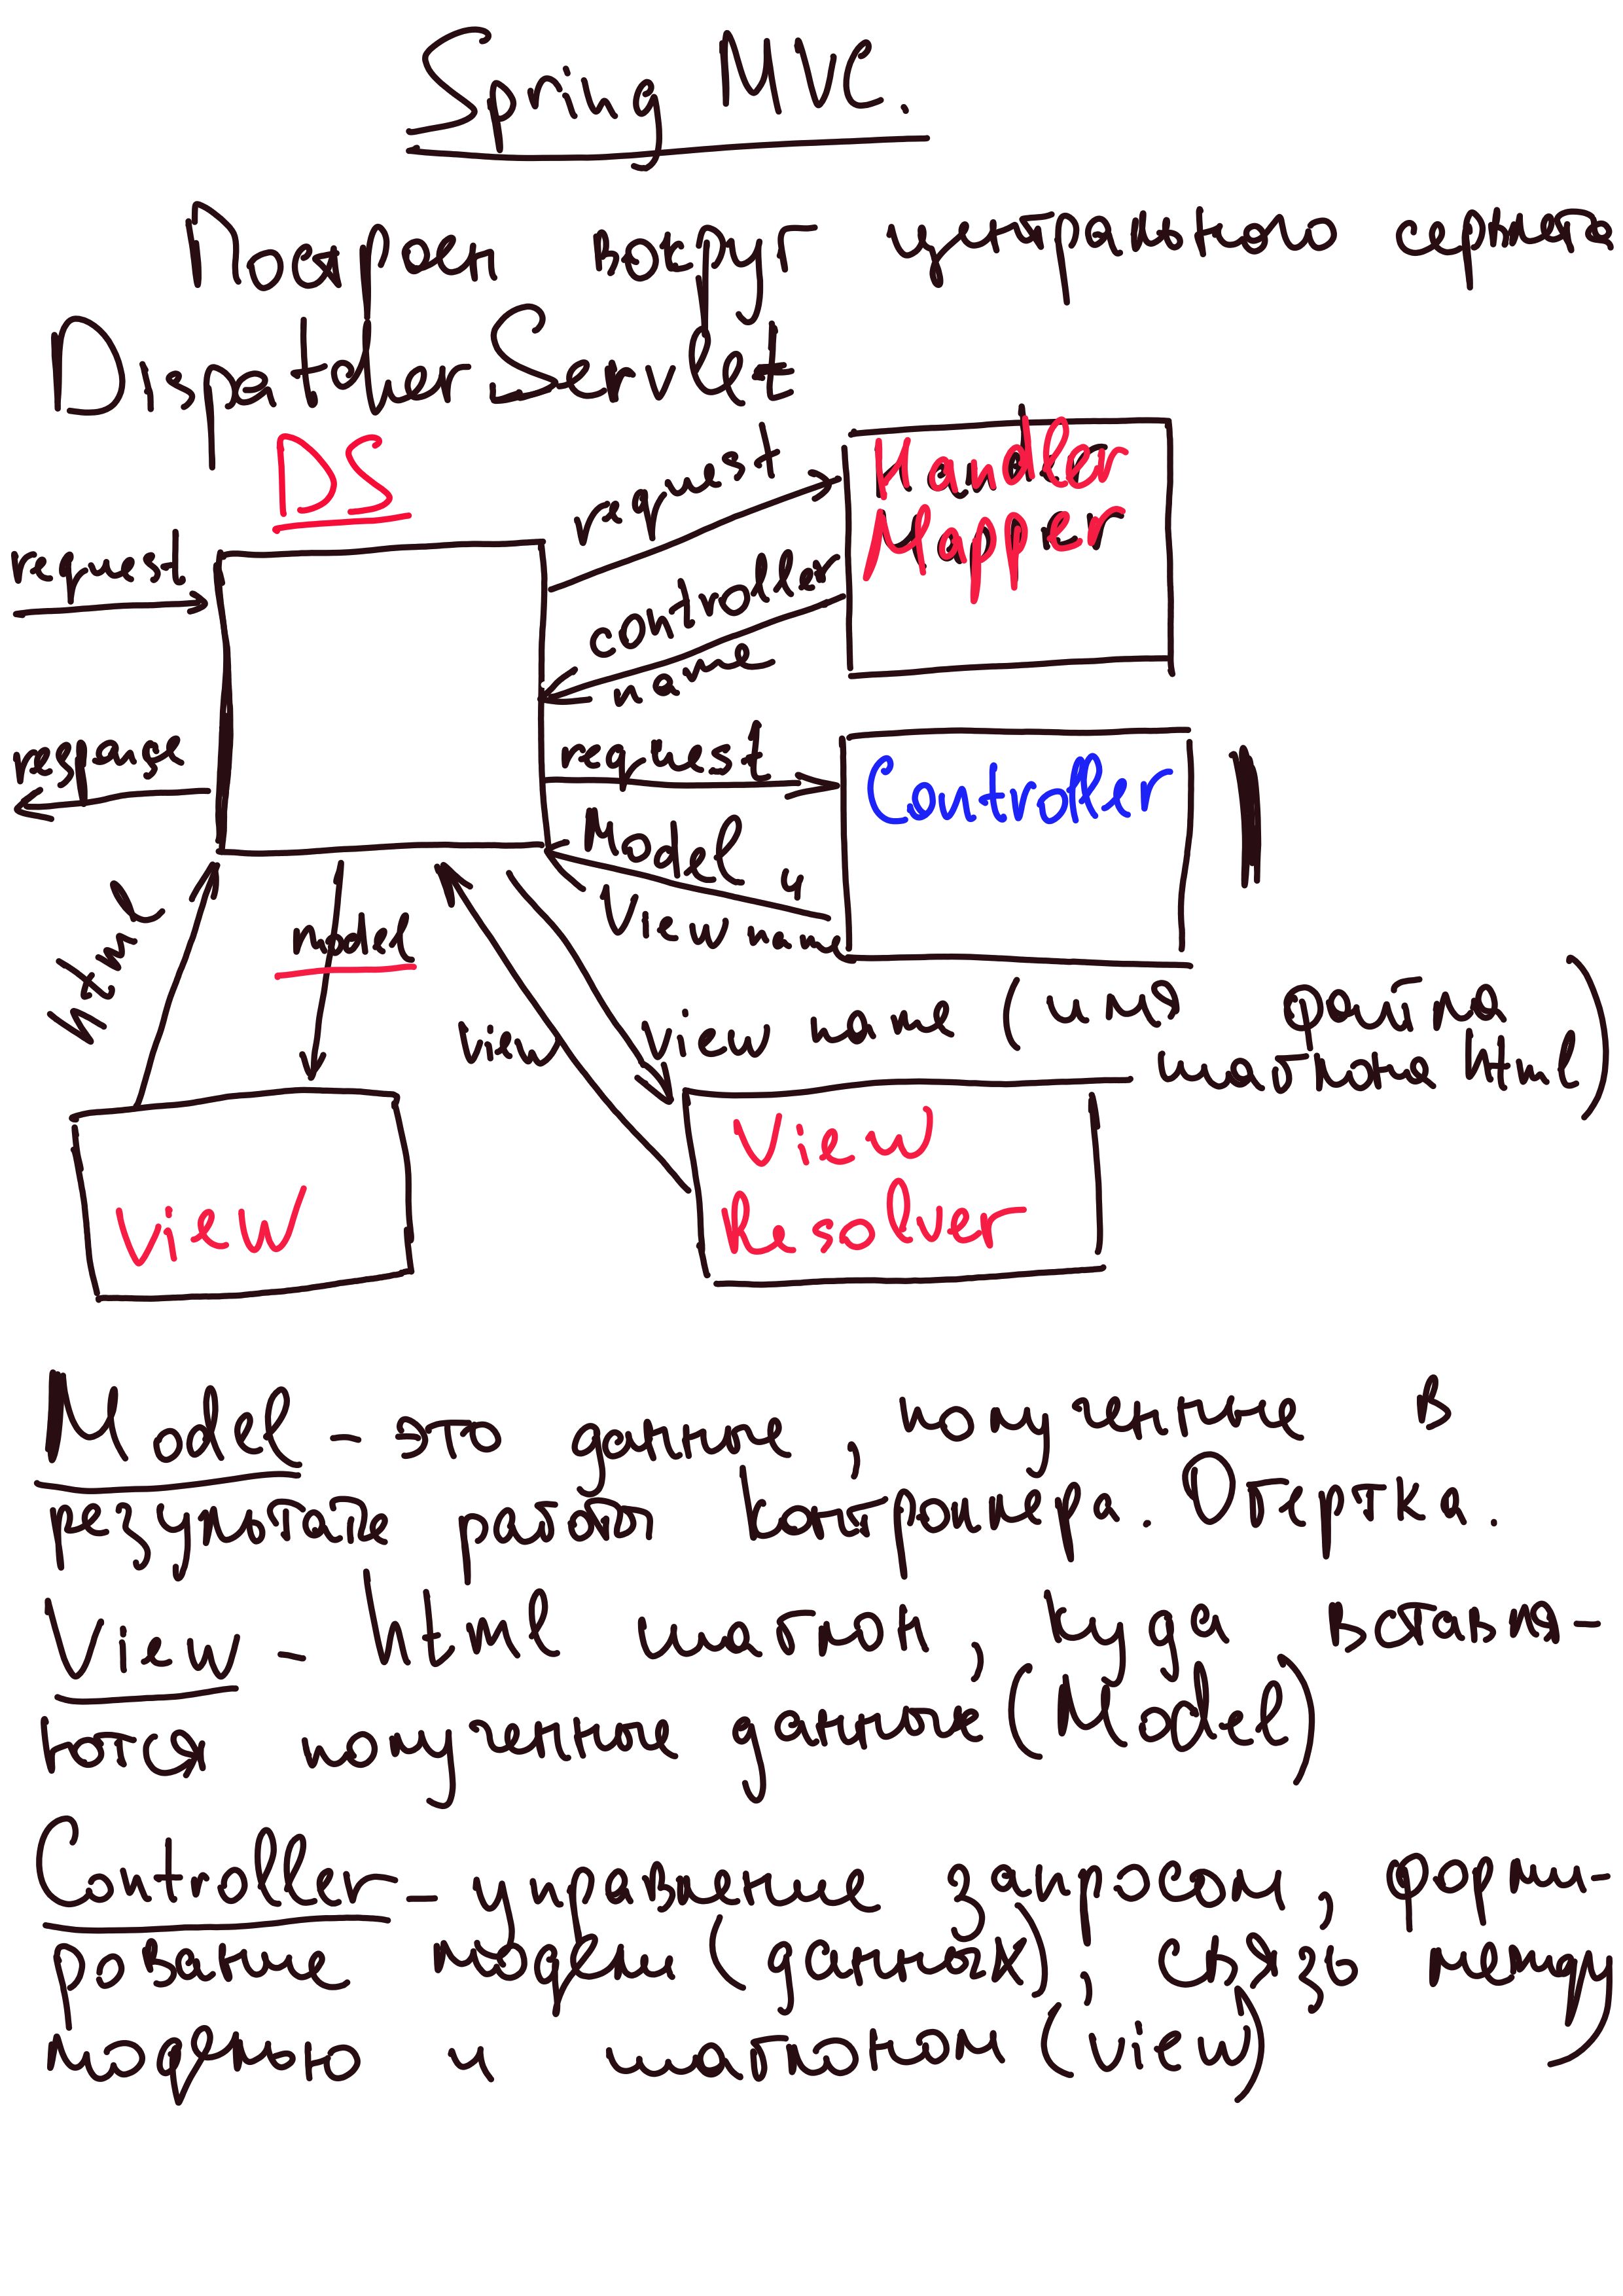 Spring MVC.
Построен вокруг центрального сервлета
DispatcherServlet
DS
request
Handler
Mapper
request
controller
name
response
request
Controller
Model и
View name
html
model
view
view name (имя файла
шаблона html)
View
Resolver
view
Model - это данные, полученные в
результате работы контроллера. Обертка.
View - html шаблон, куда вставля-
ются полученные данные (Model)
Controller - управление запросом, форми-
рование модели (данных), связь между
моделью и шаблоном (view)